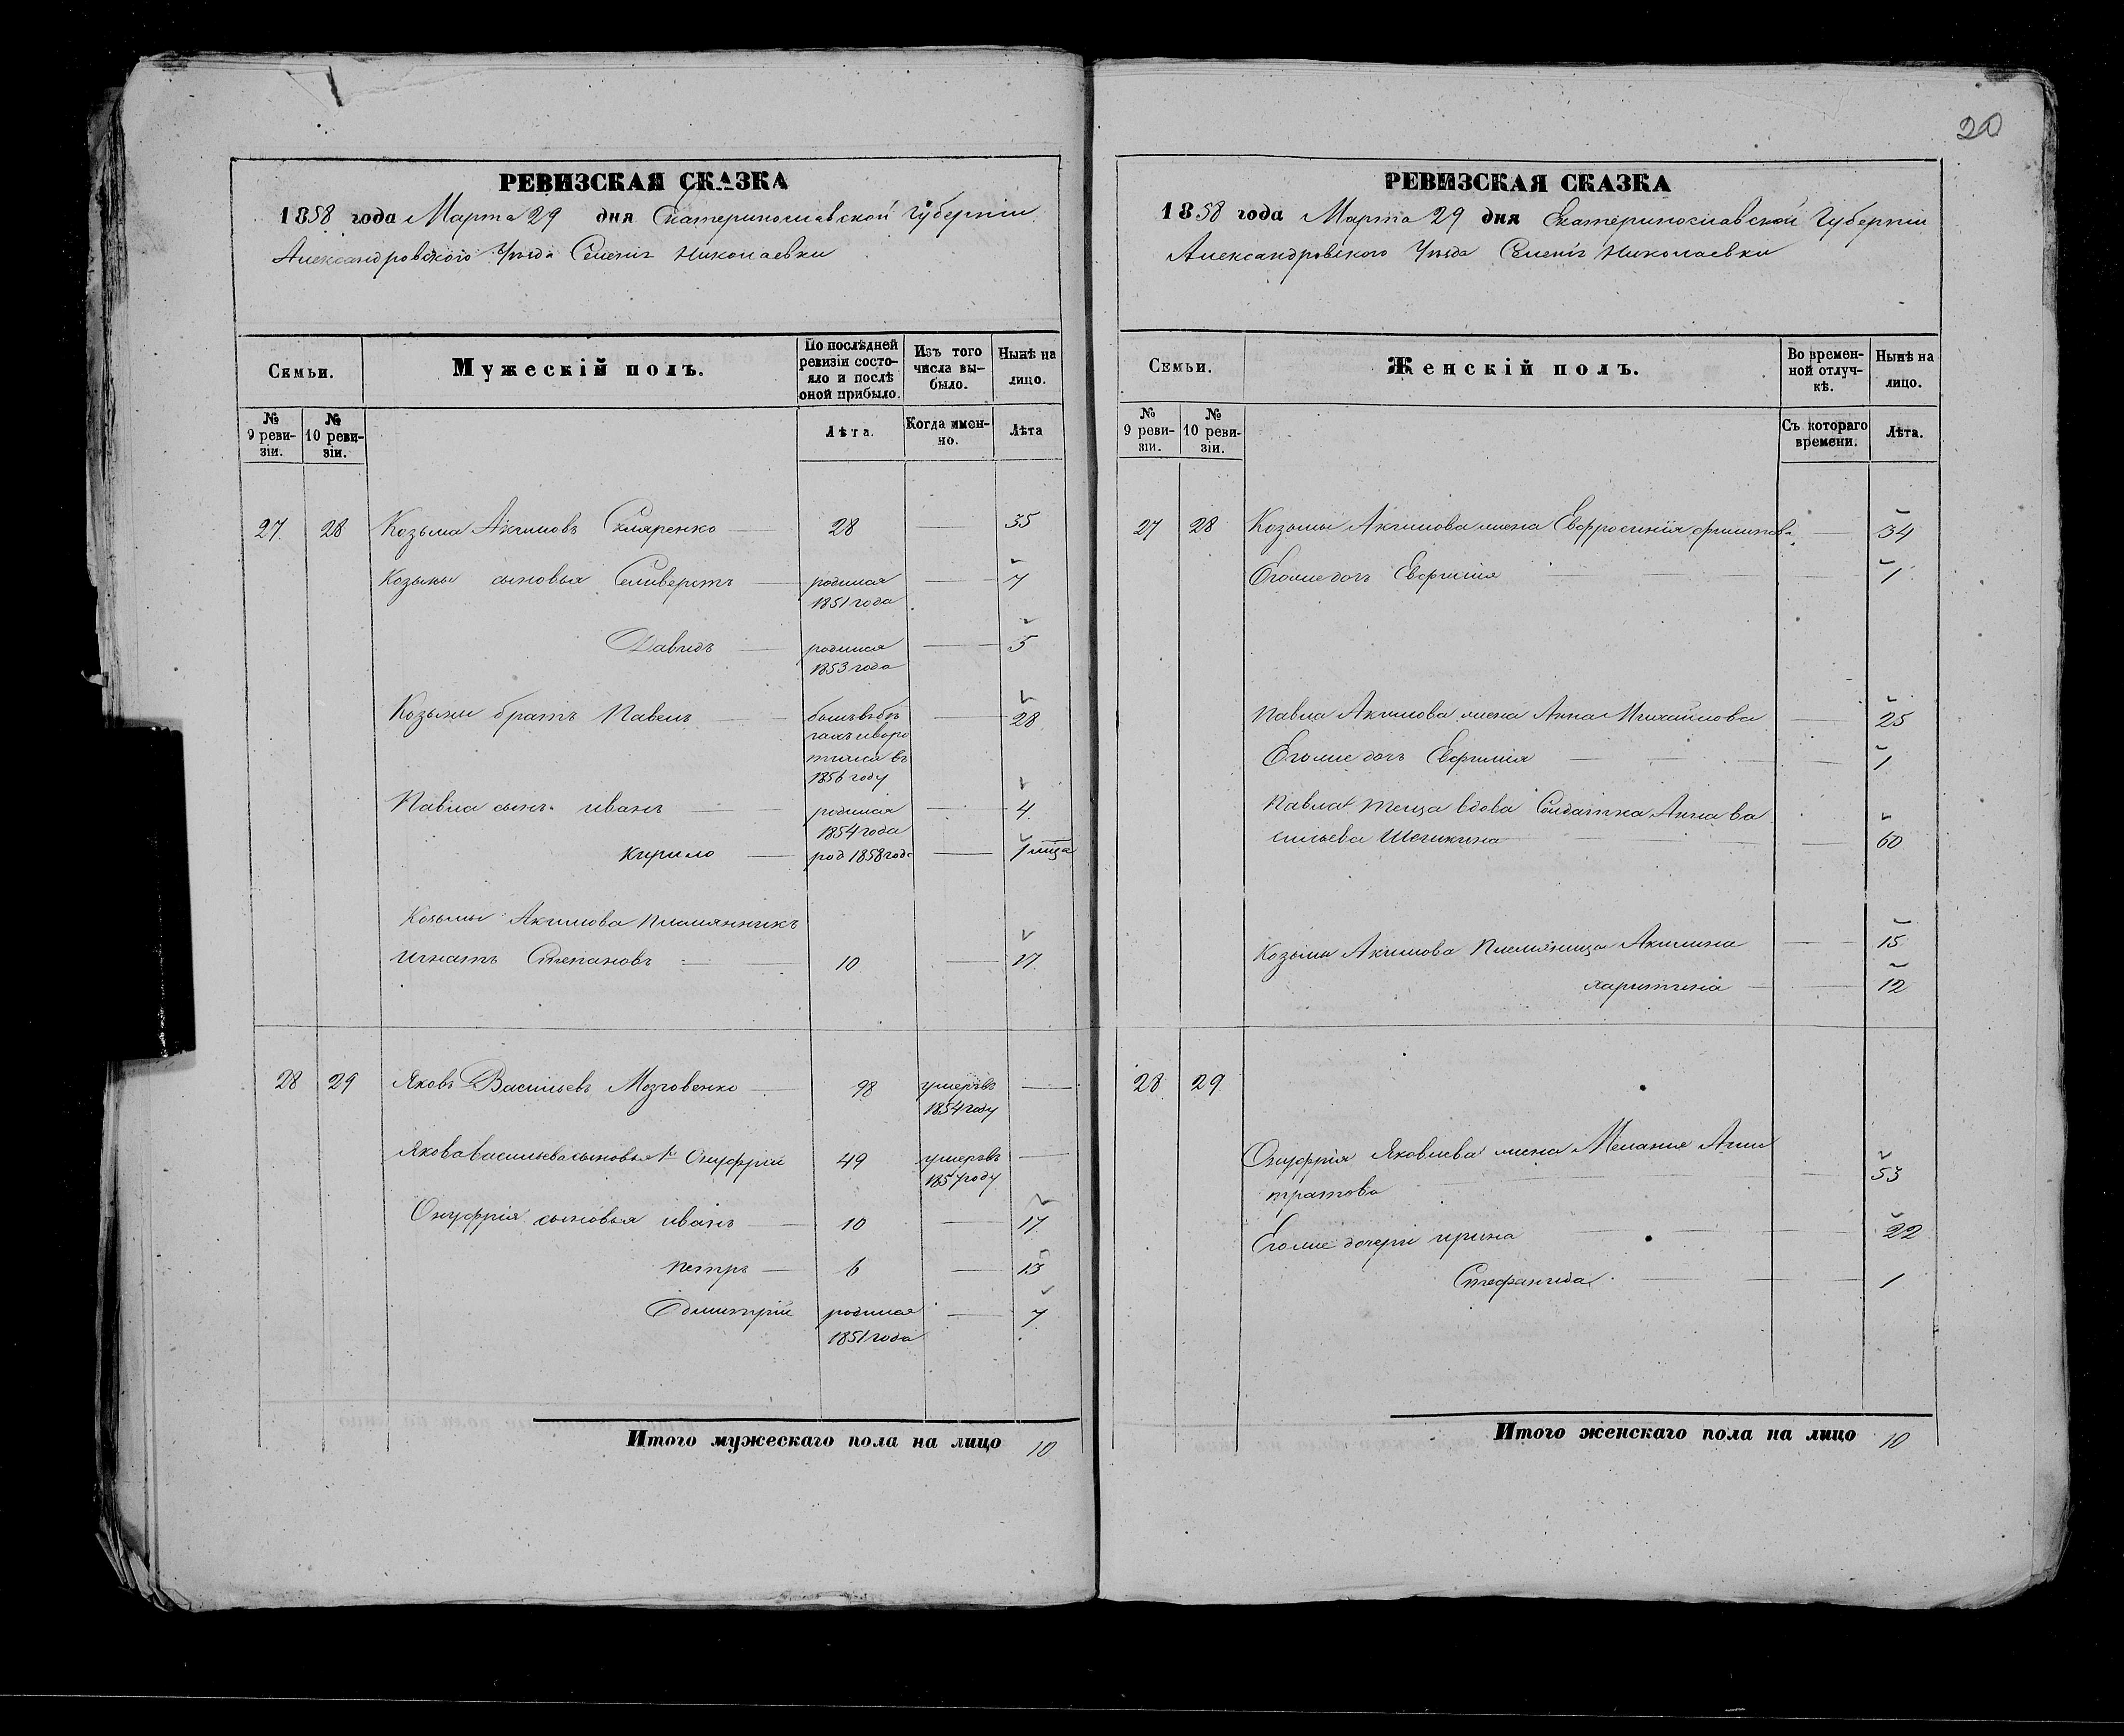 20
РЕВИЗСКАЯ СКАЗКА
1858 года Марта 29 дня Екатеринославской Губерніи
Александровского Уѣзда Селенія Николаевки
Семьи.
Мужескій полъ.
По послѣдней ревизіи состояло и послѣ оной прибыло.
Изъ того числа выбыло.
Нынѣ на лицо.
№ 9 ревизіи.
№ 10 ревизіи.
Лѣта.
Когда именно.
Лѣта
27 28 Козьма Акимовъ Скляренко 28 35
Козьмы сыновья Селиверстъ родился 1851 года 7
Давидъ родился 1853 года 5
Козьмы братъ Павелъ былъ в бѣгахъ и воротился въ 1856 году 28
Павла сынъ Иванъ родился 1854 года 4
Кирило род 1858 года 1 мца
Козьмы Акимова племянникъ
Игнатъ Степановъ 10 17
28 29 Яковъ Васильевъ Мозговенко 98 умеръ въ 1854 году
Якова Васильева сыновья 1й Онуфрій 49 умеръ въ 1857 году
Онуфрія сыновья Иванъ 10 17
Петръ 6 13
Дмитрій родился 1851 года 7
Итого мужескаго пола на лицо 10
РЕВИЗСКАЯ СКАЗКА
1858 года Марта 29 дня Екатеринославской Губерніи
Александровского Уѣзда Селенія Николаевки
Семьи.
Женскій полъ.
Во временной отлучкѣ.
Нынѣ на лицо.
№ 9 ревизіи.
№ 10 ревизіи.
Съ котораго времени.
Лѣта.
27 28 Козьмы Акимова жена Евфросинія Филипова 34
Его же дочь Евфимія 1
Павла Акимова жена Анна Михайлова 25
Его же дочь Евфимія 1
Павла теща вдова Солдатка Анна Ва
сильева 60
Козьмы Акимова племяница Акилина 15
Харитина 12
28 29
Онуфрія Яковлева жена Меланія Анти
патрова 53
Его же дочери Ирина 22
Стефанида 1
Итого женскаго пола на лицо 10